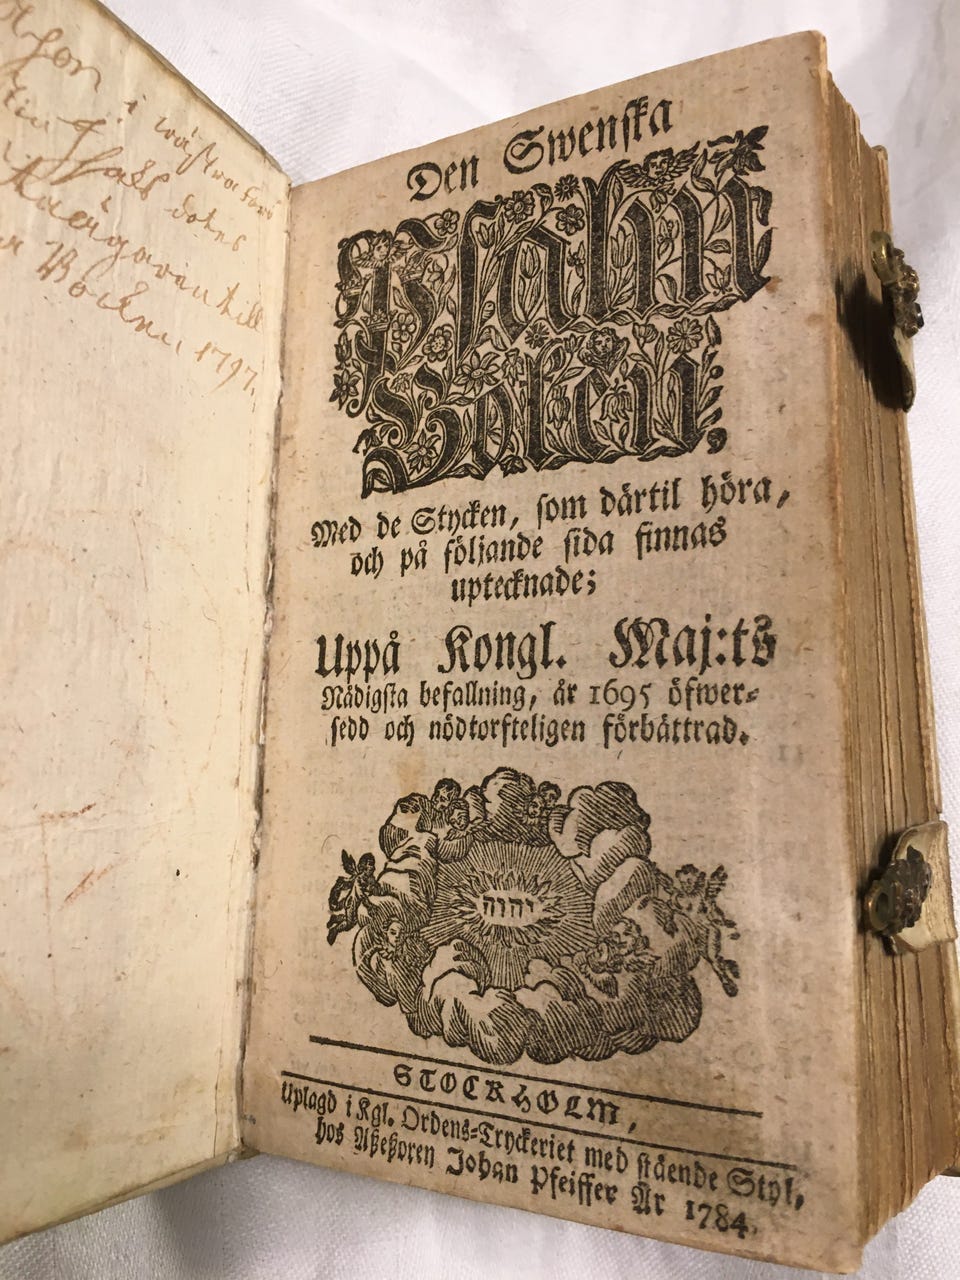 i wästra
dotes
till
Boken, 1797.
Den Swenska
Psalm
Boken,
Med de Stycken, som därtil höra,
och på följande sida finnas
uptecknade;
Uppå Kongl. Maj:ts
Nädigsta befallning, år 1695 öfwer=
sedd och nödtorfteligen förbättrad.
יהוה
STOCKHOLM,
Uplagd i Kgl. Ordens=Tryckeriet med stående Styl,
hos Aßeßoren Johan Pfeiffer År 1784.